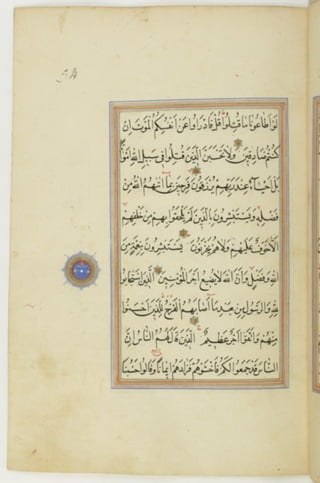 لَوْ أَطَاعُونَا مَا قُتِلُوا قُلْ فَادْرَءُوا عَنْ أَنْفُسِكُمُ الْمَوْتَ إِنْ
كُنْتُمْ صَادِقِينَ وَلَا تَحْسَبَنَّ الَّذِينَ قُتِلُوا فِي سَبِيلِ اللَّهِ أَمْوَاتًا
بَلْ أَحْيَاءٌ عِنْدَ رَبِّهِمْ يُرْزَقُونَ فَرِحِينَ بِمَا آتَاهُمُ اللَّهُ مِنْ
فَضْلِهِ وَيَسْتَبْشِرُونَ بِالَّذِينَ لَمْ يَلْحَقُوا بِهِمْ مِنْ خَلْفِهِمْ
أَلَّا خَوْفٌ عَلَيْهِمْ وَلَا هُمْ يَحْزَنُونَ يَسْتَبْشِرُونَ بِنِعْمَةٍ مِنَ
اللَّهِ وَفَضْلٍ وَأَنَّ اللَّهَ لَا يُضِيعُ أَجْرَ الْمُؤْمِنِينَ الَّذِينَ اسْتَجَابُوا
لِلَّهِ وَالرَّسُولِ مِنْ بَعْدِ مَا أَصَابَهُمُ الْقَرْحُ لِلَّذِينَ أَحْسَنُوا
مِنْهُمْ وَاتَّقَوْا أَجْرٌ عَظِيمٌ الَّذِينَ قَالَ لَهُمُ النَّاسُ إِنَّ
النَّاسَ قَدْ جَمَعُوا لَكُمْ فَاخْشَوْهُمْ فَزَادَهُمْ إِيمَانًا وَقَالُوا حَسْبُنَا